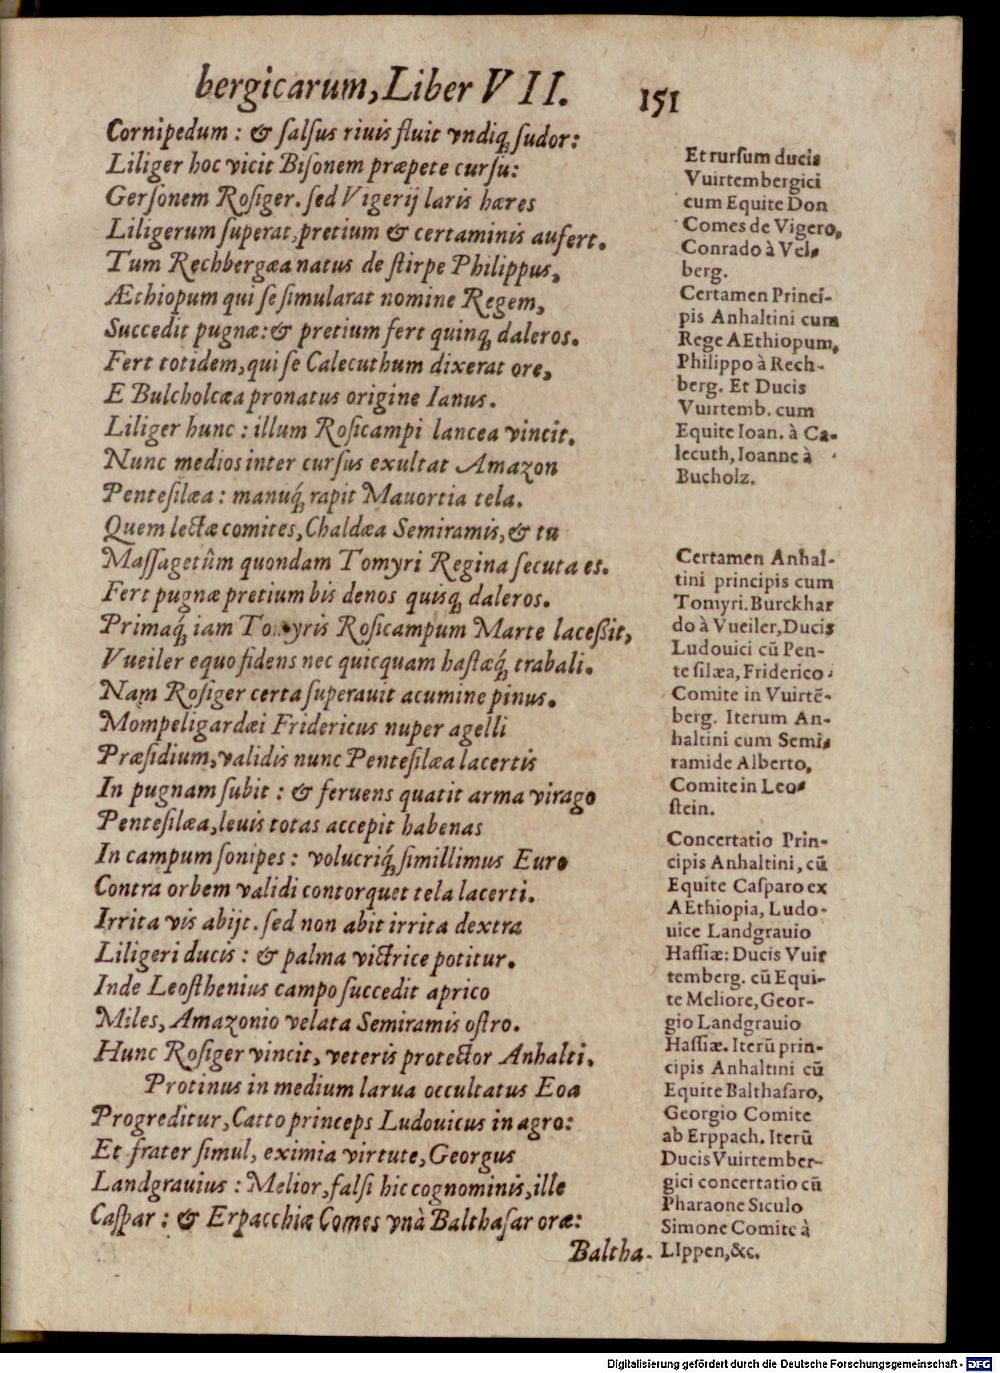 bergicarum, Liber VII. 151
Cornipedum: & ſalſus riuis fluit vndiq́; ſudor:
Liliger hoc vicit Biſonem præpete curſu:
Gerſonem Roſiger. ſed Vigerij laris hæres
Liligerum ſuperat, pretium & certaminis aufert.
Tum Rechbergæa natus de ſtirpe Philippus,
Æthiopum qui ſe ſimularat nomine Regem,
Succedit pugnæ: & pretium fert quinq́; daleros.
Fert totidem, qui ſe Calecuthum dixerat ore,
E Bulcholcæa pronatus origine Ianus.
Liliger hunc: illum Roſicampi lancea vincit.
Nunc medios inter curſus exultat Amazon
Penteſilæa: manuq́; rapit Mauortia tela.
Quem lectæ comites, Chaldæa Semiramis, & tu
Maſſagetûm quondam Tomyri Regina ſecuta es.
Fert pugnæ pretium bis denos quiſq́; daleros.
Primaq́; iam Tomyris Roſicampum Marte laceßit,
Vueiler equo fidens nec quicquam haſtæq́; trabali.
Nam Roſiger certa ſuperauit acumine pinus.
Mompeligardæi Fridericus nuper agelli
Præſidium, validis nunc Penteſilæa lacertis
In pugnam ſubit: & feruens quatit arma virago
Penteſilæa, leuis totas accepit habenas
In campum ſonipes: volucriq́; ſimillimus Euro
Contra orbem validi contorquet tela lacerti.
Irrita vis abijt. ſed non abit irrita dextra
Liligeri ducis: & palma victrice potitur.
Inde Leoſthenius campo ſuccedit aprico
Miles, Amazonio velata Semiramis oſtro.
Hunc Roſiger vincit, veteris protector Anhalti.
Protinus in medium larua occultatus Eoa
Progreditur, Catto princeps Ludouicus in agro:
Et frater ſimul, eximia virtute, Georgus
Landgrauius: Melior, falſi hic cognominis, ille
Caſpar: & Erpacchiæ Comes vnà Balthaſar oræ:
Baltha-
Et rurſum ducis
Vuirtembergici
cum Equite Don
Comes de Vigero,
Conrado à Vel-
berg.
Certamen Princi-
pis Anhaltini cum
Rege AEthiopum,
Philippo à Rech-
berg. Et Ducis
Vuirtemb. cum
Equite Ioan. à Ca-
lecuth, Ioanne à
Bucholz.
Certamen Anhal-
tini principis cum
Tomyri. Burckhar
do à Vueiler, Ducis
Ludouici cũ Pen-
teſilæa, Friderico
Comite in Vuirtẽ-
berg. Iterum An-
haltini cum Semi-
ramide Alberto,
Comite in Leo-
ſtein.
Concertatio Prin-
cipis Anhaltini, cũ
Equite Caſparo ex
AEthiopia, Ludo-
uice Landgrauio
Haſſiæ: Ducis Vuir
temberg. cũ Equi-
te Meliore, Geor-
gio Landgrauio
Haſſiæ. Iterũ prin-
cipis Anhaltini cũ
Equite Balthaſaro,
Georgio Comite
ab Erppach. Iterũ
Ducis Vuirtember-
gici concertatio cũ
Pharaone Siculo
Simone Comite à
LIppen, &c.
Digitalisierung gefördert durch die Deutsche Forschungsgemeinschaft - DFG